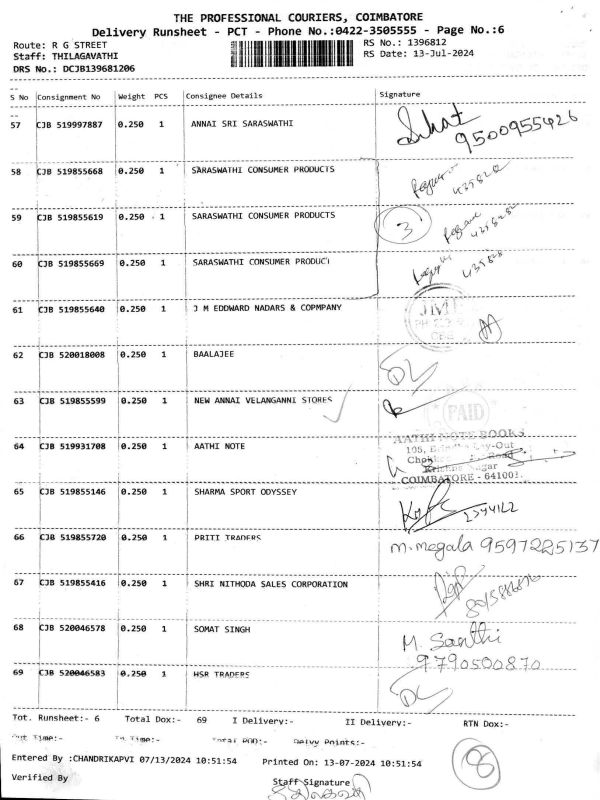 THE PROFESSIONAL COURIERS, COIMBATORE
Delivery Runsheet - PCT - Phone No.:0422-3505555 - Page No.:6
Route: R G STREET RS No.: 1396812
Staff: THILAGAVATHI RS Date: 13-Jul-2024
DRS No.: DCJB139681206
S No Consignment No Weight PCS Consignee Details Signature
57 CJB 519997887 0.250 1 ANNAI SRI SARASWATHI
9500955426
58 CJB 519855668 0.250 1 SARASWATHI CONSUMER PRODUCTS
59 CJB 519855619 0.250 1 SARASWATHI CONSUMER PRODUCTS
3
60 CJB 519855669 0.250 1 SARASWATHI CONSUMER PRODUCT
61 CJB 519855640 0.250 1 J M EDDWARD NADARS & COPMPANY
62 CJB 520018008 0.250 1 BAALAJEE
DL
63 CJB 519855599 0.250 1 NEW ANNAI VELANGANNI STORES
PAID
64 CJB 519931708 0.250 1 AATHI NOTE
AATHI NOTE BOOKS
105, Lay-Out
Road
Krishna Nagar
COIMBATORE - 641001.
65 CJB 519855146 0.250 1 SHARMA SPORT ODYSSEY
66 CJB 519855720 0.250 1 PRITI TRADERS
m. megala 9597225137
67 CJB 519855416 0.250 1 SHRI NITHODA SALES CORPORATION
68 CJB 520046578 0.250 1 SOMAT SINGH
M. Santhi
9790500870
69 CJB 520046583 0.250 1 HSR TRADERS
DL
Tot. Runsheet:- 6 Total Dox:- 69 I Delivery:- II Delivery:- RTN Dox:-
Out Time:- In Time:- Total POD:- Delvy Points:-
Entered By :CHANDRIKAPVI 07/13/2024 10:51:54 Printed On: 13-07-2024 10:51:54
8
Verified By Staff Signature